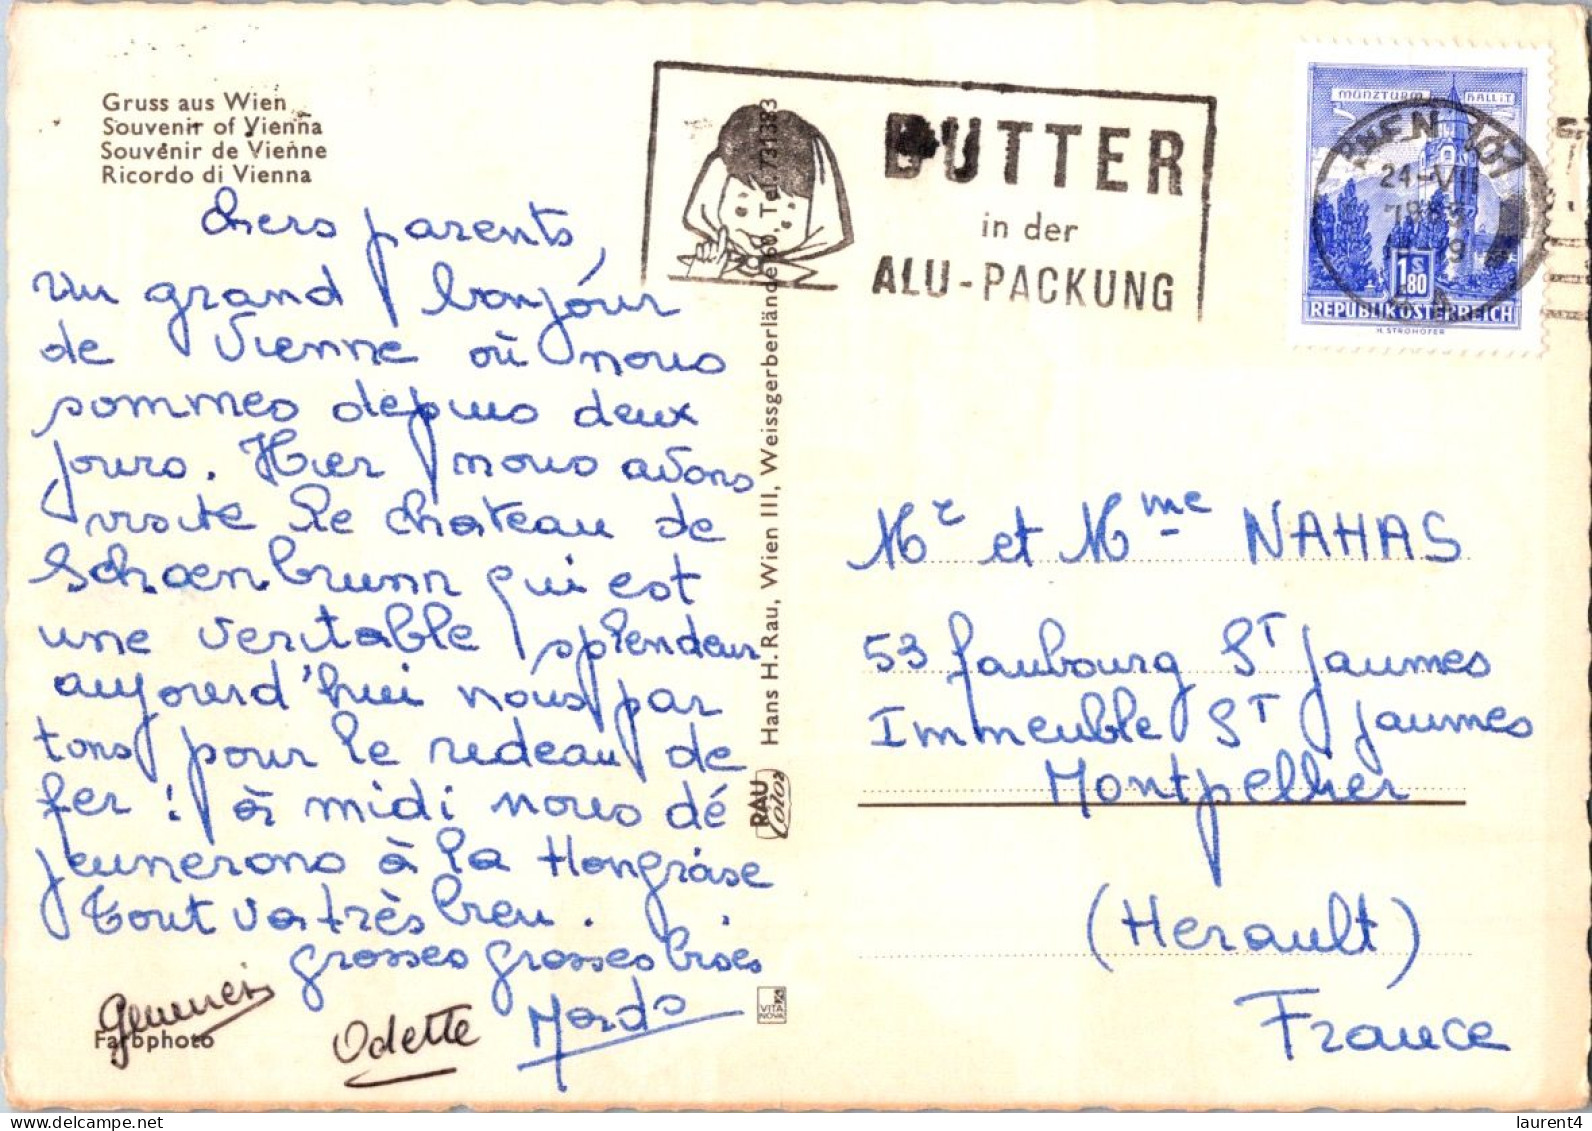 Gruss aus Wien
Souvenir of Vienna
Souvénir de Vienne
Ricordo di Vienna
chers parents,
Un grand bonjour
de Vienne où nous
sommes depuis deux
jours. Hier nous avons
visite le chateau de
Schoenbrunn qui est
une veritable splendeur
aujourd'hui nous par
tons pour le rideau de
fer : à midi nous dé
jeunerons à la Hongroise
Tout va très bien.
grosses grosses bises
Odette
Farbphoto
Hans H. Rau, Wien III, Weissgerberlände 60, Tel. 731383
RAU
Color
VITA
NOVA
BUTTER
in der
ALU-PACKUNG
MÜNZTURM HALL i.T.
WIEN 107
24-VII
1S80
REPUBLIK ÖSTERREICH
H. STROHOFER
Mr et Mme NAHAS
53 faubourg St Jaumes
Immeuble St Jaumes
Montpellier
(Herault)
France
laurent4